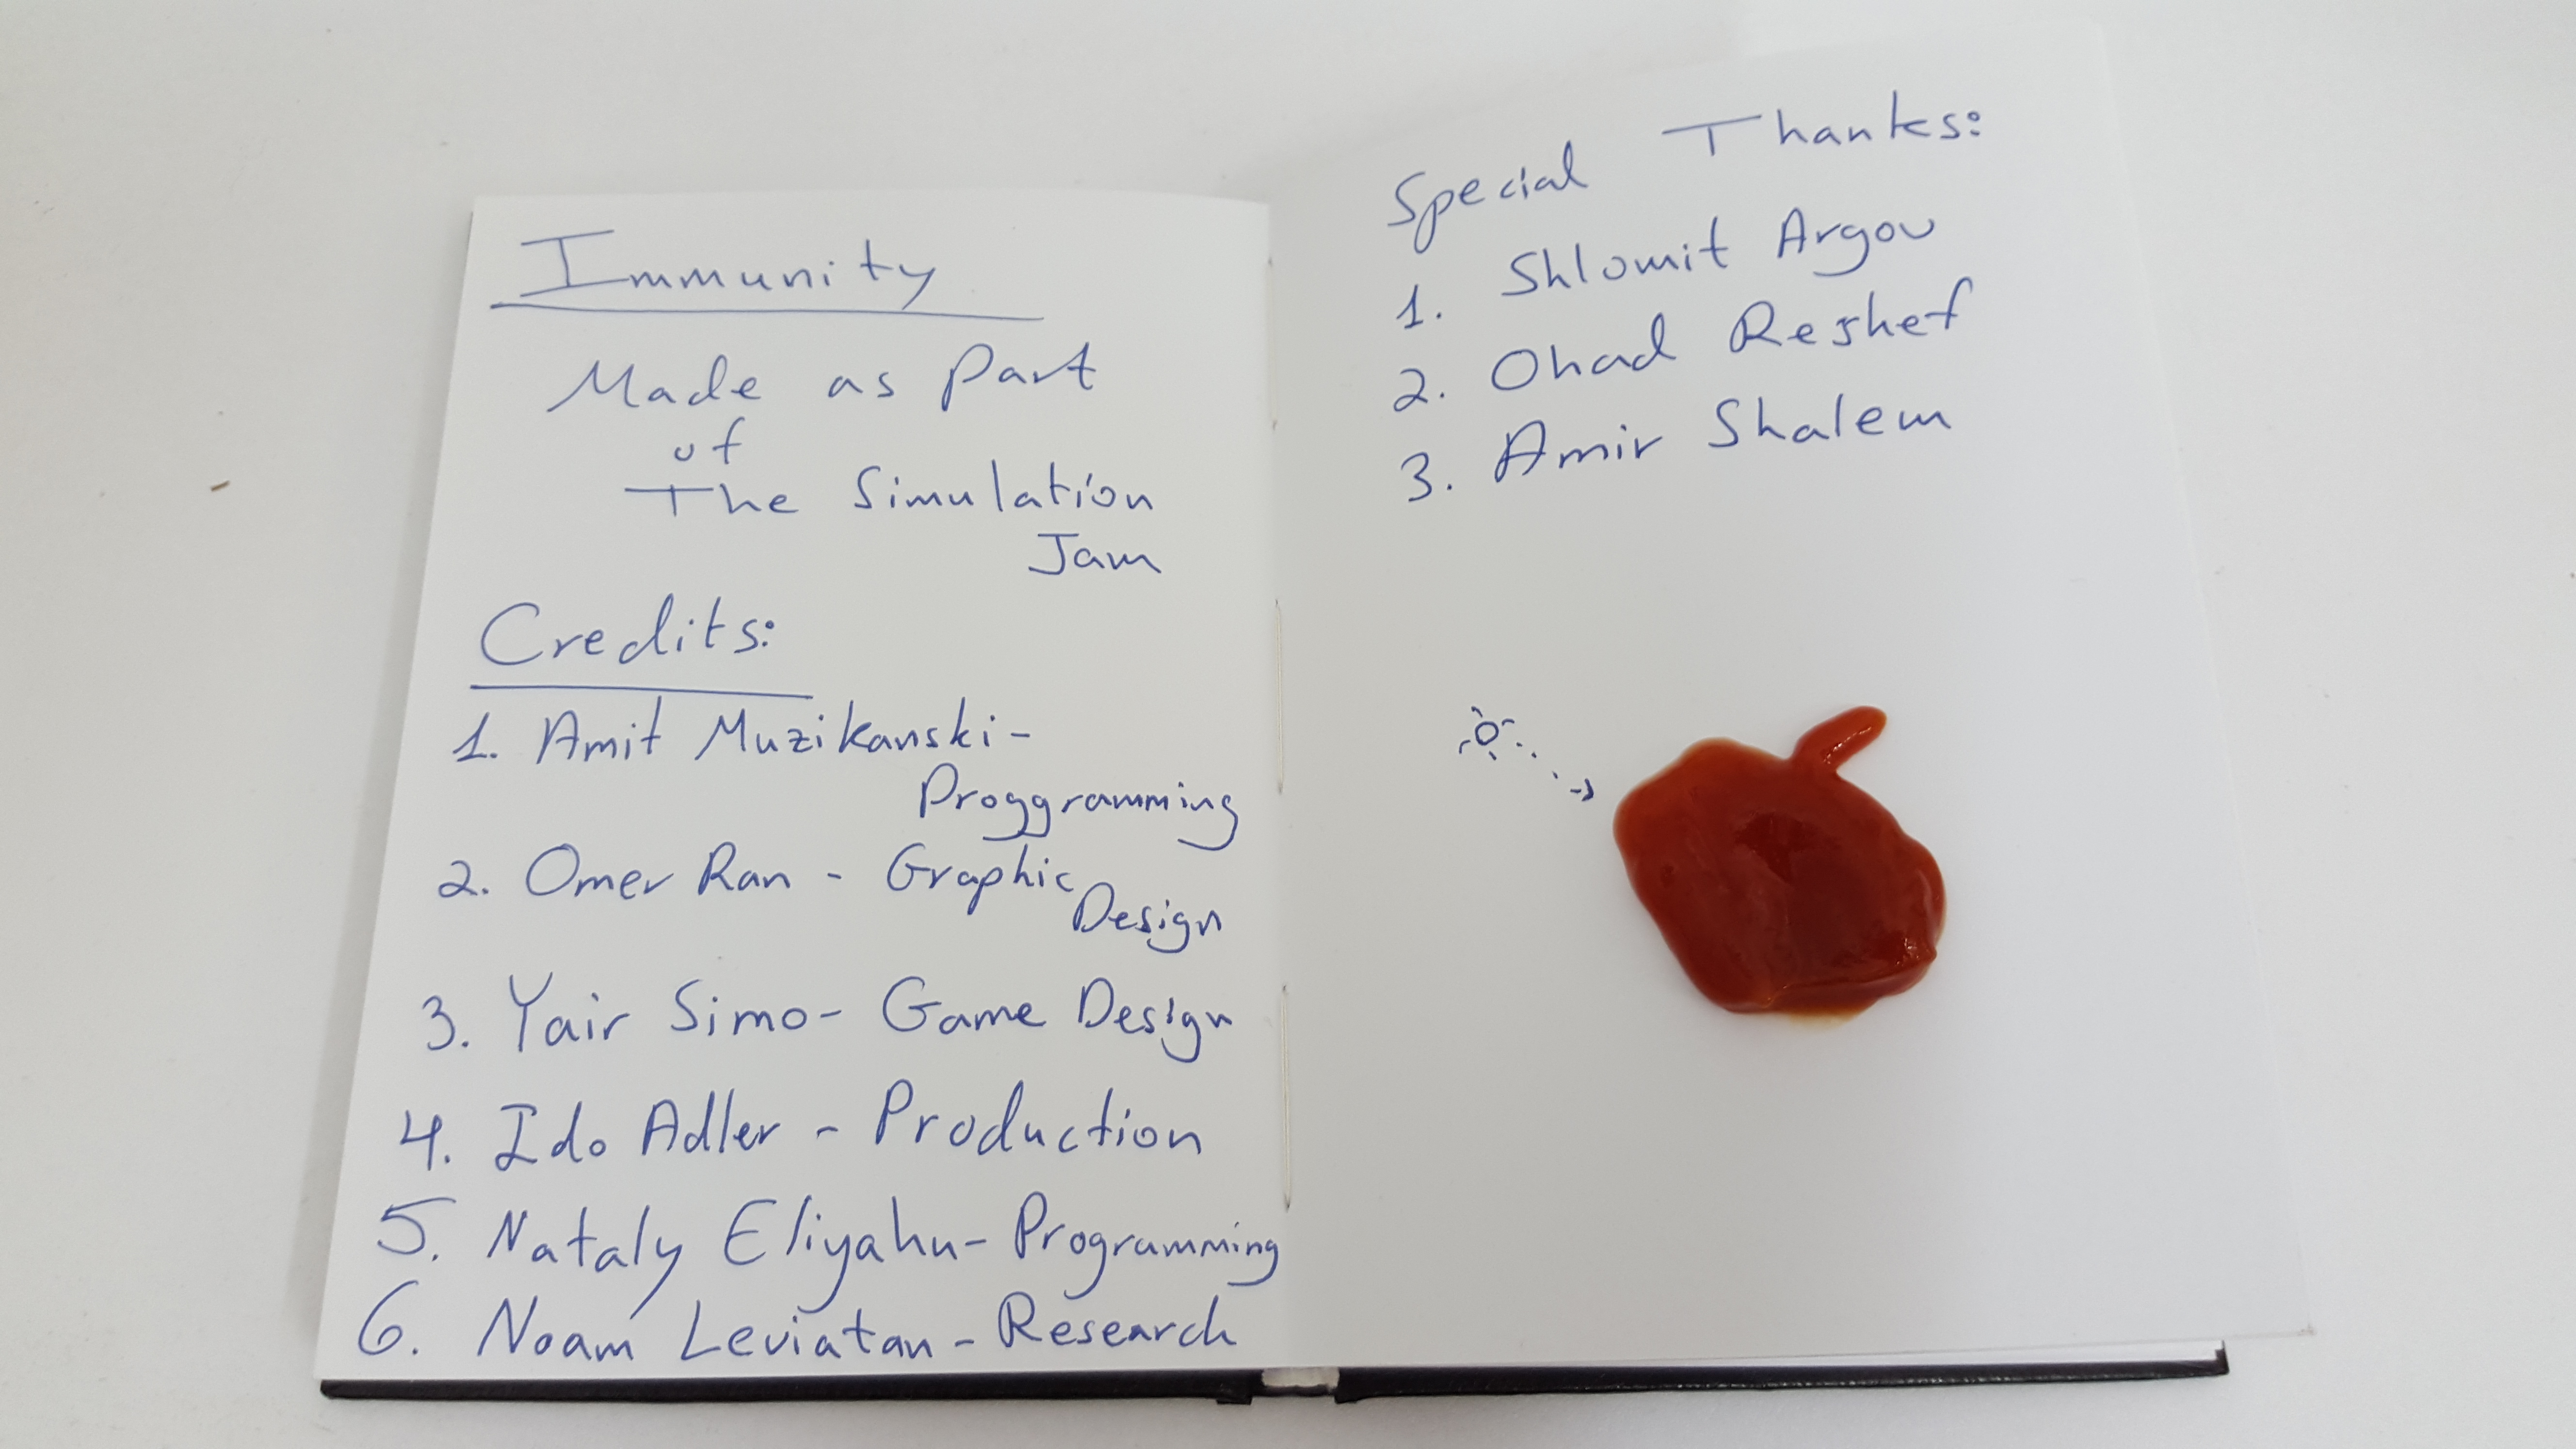 Immunity
Made as Part
of
The Simulation
Jam
Credits:
1. Amit Muzikanski-
Proggramming
2. Omer Ran - Graphic
Design
3. Yair Simo- Game Design
4. Ido Adler - Production
5. Nataly Eliyahu- Programming
6. Noam Leviatan - Research
Special Thanks:
1. Shlomit Argov
2. Ohad Reshef
3. Amir Shalem